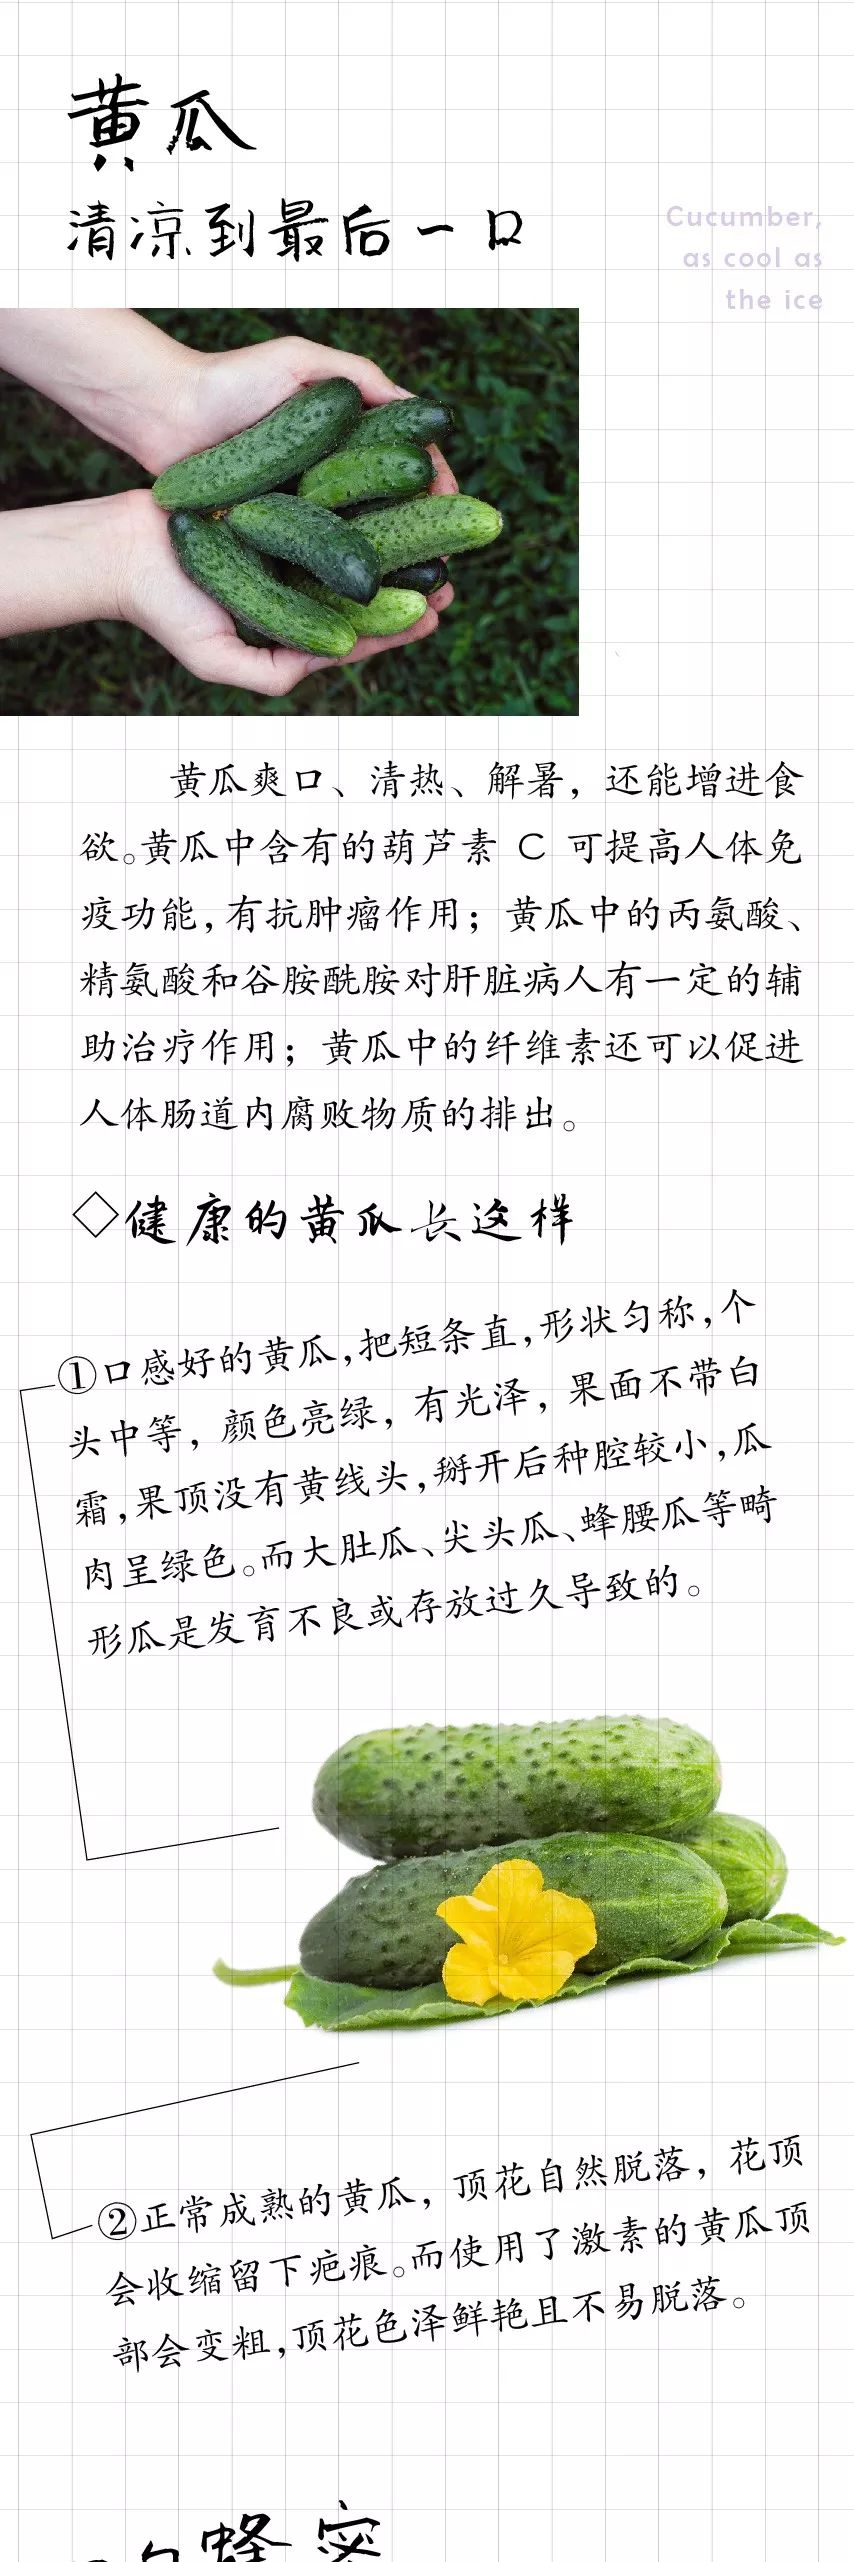 黄瓜
清凉到最后一口
Cucumber,
as cool as
the ice
黄瓜爽口、清热、解暑，还能增进食
欲。黄瓜中含有的葫芦素 C 可提高人体免
疫功能，有抗肿瘤作用；黄瓜中的丙氨酸、
精氨酸和谷胺酰胺对肝脏病人有一定的辅
助治疗作用；黄瓜中的纤维素还可以促进
人体肠道内腐败物质的排出。
◇健康的黄瓜长这样
①口感好的黄瓜，把短条直，形状匀称，个
头中等，颜色亮绿，有光泽，果面不带白
霜，果顶没有黄线头，掰开后种腔较小，瓜
肉呈绿色。而大肚瓜、尖头瓜、蜂腰瓜等畸
形瓜是发育不良或存放过久导致的。
②正常成熟的黄瓜，顶花自然脱落，花顶
会收缩留下疤痕。而使用了激素的黄瓜顶
部会变粗，顶花色泽鲜艳且不易脱落。
蜂蜜